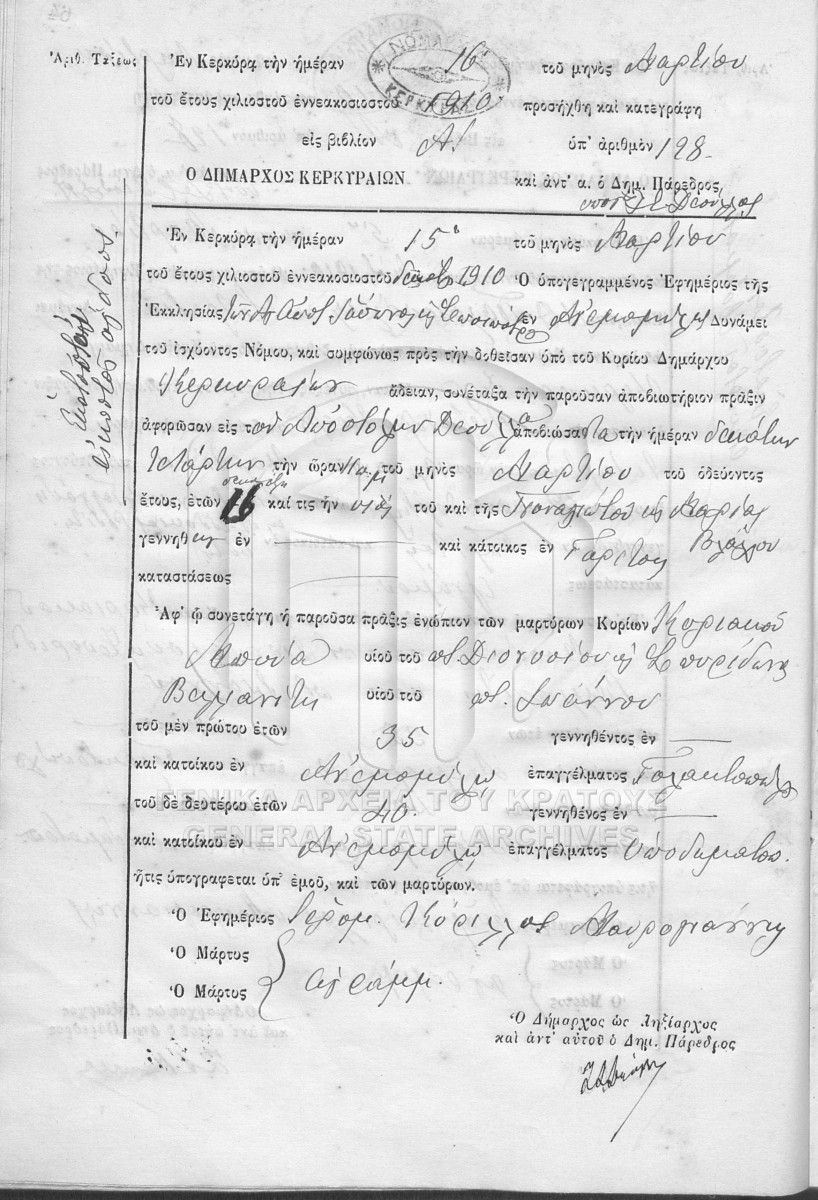 Ἀριθ. Τάξεως
Ἐν Κερκύρᾳ τὴν ἡμέραν 16 τοῦ μηνὸς Μαρτίου
ΝΟΜΑΡΧ
ΚΕΡΚΥΡΑ
τοῦ ἔτους χιλιοστοῦ ἐννεακοσιοστοῦ 1910 προσήχθη καὶ κατεγράφη
εἰς βιβλίον Α! ὑπ' ἀριθμὸν 128.
Ο ΔΗΜΑΡΧΟΣ ΚΕΡΚΥΡΑΙΩΝ καὶ ἀντ' α. ὁ Δημ. Πάρεδρος,
Ἑκατοστὸς εἰκοστὸς ὄγδοος
Ἐν Κερκύρᾳ τὴν ἡμέραν 15 τοῦ μηνὸς Μαρτίου
τοῦ ἔτους χιλιοστοῦ ἐννεακοσιοστοῦ 1910 Ὁ ὑπογεγραμμένος Ἐφημέριος τῆς
Ἐκκλησίας τῶν Ἁ Ἀποσ Ἰάσωνος καὶ Σωσιπάτρου ἐν Ἀνεμομύλῳ Δυνάμει
τοῦ ἰσχύοντος Νόμου, καὶ συμφώνως πρὸς τὴν δοθεῖσαν ὑπὸ τοῦ Κυρίου Δημάρχου
Κερκυραίων ἄδειαν, συνέταξα τὴν παροῦσαν ἀποβιωτήριον πρᾶξιν
ἀφορῶσαν εἰς τὸν ἀποβιώσαντα τὴν ἡμέραν δεκάτην
τετάρτην τὴν ὥραν τοῦ μηνὸς Μαρτίου τοῦ ὁδεύοντος
ἔτους, ἐτῶν 16 καί τις ἦν υἱὸς τοῦ καὶ τῆς Παναγιώτου καὶ Μαρίας
γεννηθεὶς ἐν καὶ κάτοικος ἐν Γαρίτσης
καταστάσεως
Ἀφ' ᾧ συνετάγη ἡ παροῦσα πρᾶξις ἐνώπιον τῶν μαρτύρων Κυρίων Κυριακοῦ
υἱοῦ τοῦ π. Διονυσίου καὶ Σπυρίδωνος
Βαλμανίτη υἱοῦ τοῦ π. Ἰωάννου
τοῦ μὲν πρώτου ἐτῶν 35 γεννηθέντος ἐν
καὶ κατοίκου ἐν Ἀνεμομύλῳ ἐπαγγέλματος Γαλακτοπώλ
τοῦ δὲ δευτέρου ἐτῶν 40. γεννηθένος ἐν
ΓΕΝΙΚΑ ΑΡΧΕΙΑ ΤΟΥ ΚΡΑΤΟΥΣ
GENERAL STATE ARCHIVES
καὶ κατοίκου ἐν Ἀνεμομύλῳ ἐπαγγέλματος Ὑποδηματοπ.
ἥτις ὑπογράφεται ὑπ' ἐμοῦ, καὶ τῶν μαρτύρων.
Ὁ Ἐφημέριος Ἱερομ. Κύριλλος Μαυρογιάννης
Ὁ Μάρτυς
Ὁ Μάρτυς
ἀγράμμ.
Ὁ Δήμαρχος ὡς Ληξίαρχος
καὶ ἀντ' αὐτοῦ ὁ Δημ. Πάρεδρος